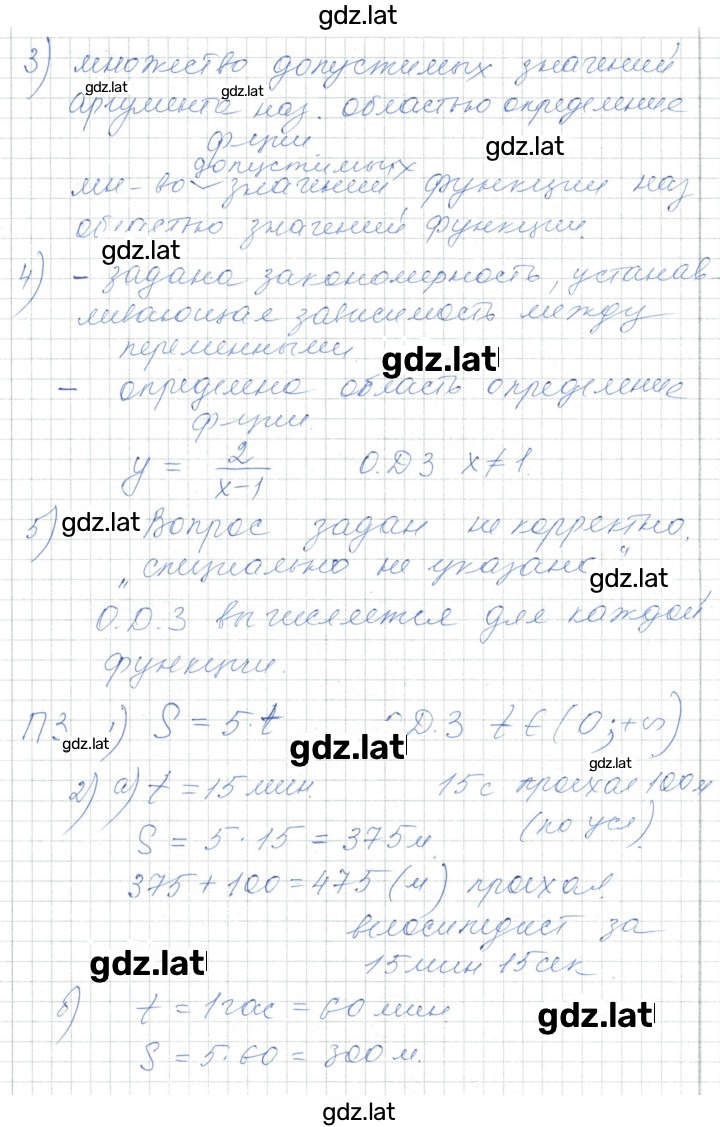 gdz.lat
3) множество допустимых значений
gdz.lat gdz.lat
аргумента наз. областью определение
ф-ции.
gdz.lat
допустимых
мн-во значений функции наз
областью значений функции.
gdz.lat
4) - задана закономерность, устанав-
ливающая зависимость между
переменными.
gdz.lat
- определено область определение
ф-ции.
y = 2/(x-1) О.Д З x≠1.
5) gdz.lat Вопрос задан не корректно.
„специально не указано"
gdz.lat
О.Д.З вычисляется для каждой
функции.
ПЗ 1) S = 5·t О.Д.З t∈(0;+∞)
gdz.lat gdz.lat gdz.lat
2) а) t = 15 мин. 15с проехал 100м
S = 5·15 = 375м. (по усл).
375+100=475 (м) проехал
велосипедист за
gdz.lat
15мин 15сек
б) t = 1час = 60 мин.
gdz.lat
S = 5·60 = 300 м.
gdz.lat